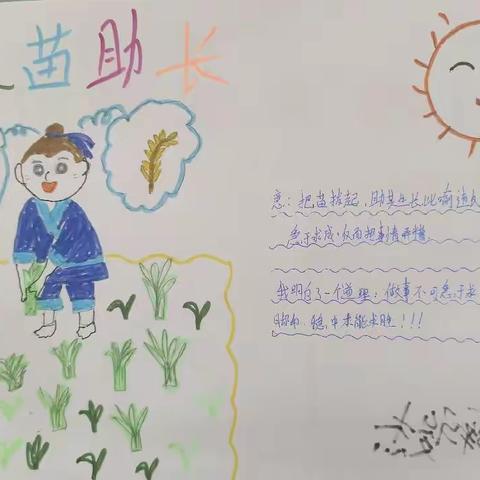 苗助长
意：把苗拔起，助其生长比喻违反
急于求成，反而把事情弄糟
我明白了一个道理：做事不可急于求
稳中求能求胜！！！